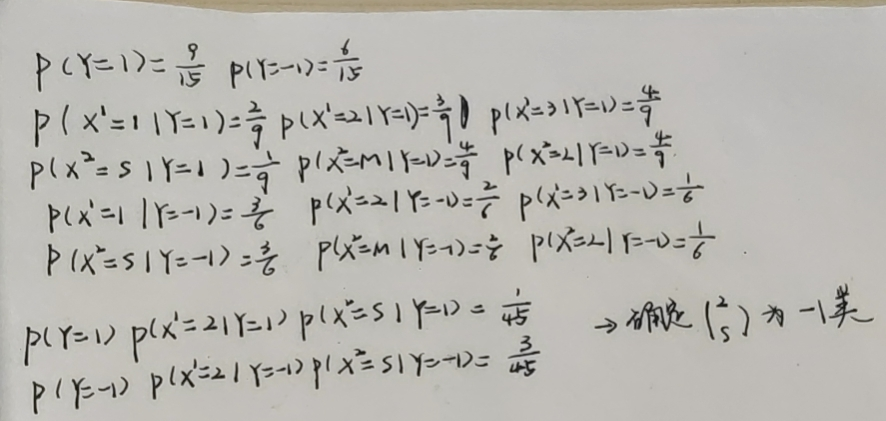 P(Y=1)=9/15 P(Y=-1)=6/15
P(X¹=1|Y=1)=2/9 P(X¹=2|Y=1)=3/9 P(X¹=3|Y=1)=4/9
P(X²=S|Y=1)=1/9 P(X²=M|Y=1)=4/9 P(X²=L|Y=1)=4/9
P(X¹=1|Y=-1)=3/6 P(X¹=2|Y=-1)=2/6 P(X¹=3|Y=-1)=1/6
P(X²=S|Y=-1)=3/6 P(X²=M|Y=-1)=2/6 P(X²=L|Y=-1)=1/6
P(Y=1) P(X¹=2|Y=1) P(X²=S|Y=1)=1/45 → 确定(2 S)为-1类
P(Y=-1) P(X¹=2|Y=-1) P(X²=S|Y=-1)=3/45